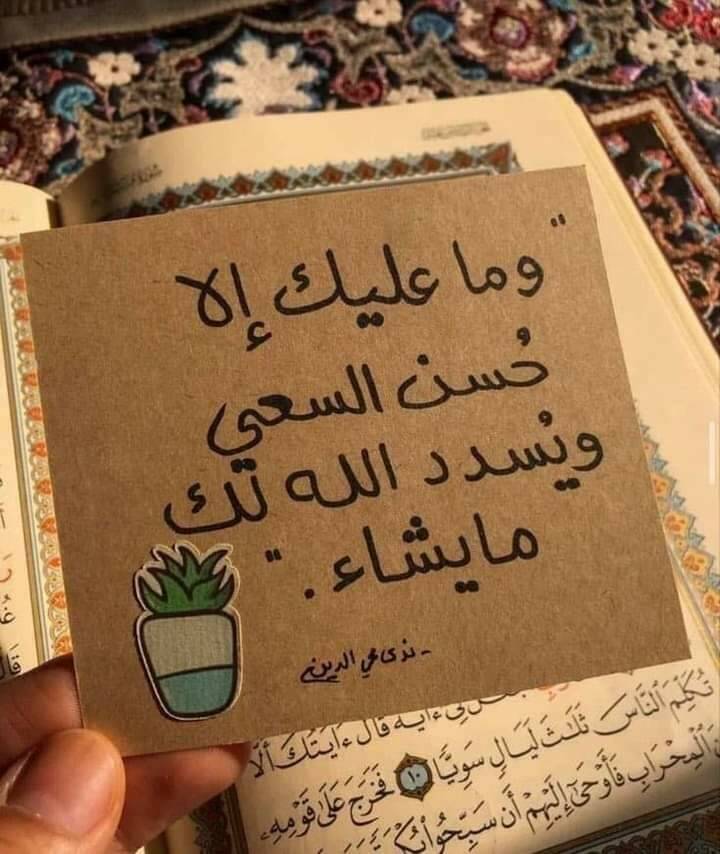 "وما عليك إلا
حُسن السعي
ويُسدد الله لك
مايشاء ."
- ندى محي الدين
قَالَ ءَايَتُكَ أَلَّا
تُكَلِّمَ ٱلنَّاسَ ثَلَٰثَ لَيَالٍ سَوِيًّا ١٠ فَخَرَجَ عَلَىٰ قَوْمِهِۦ
ٱلْمِحْرَابِ فَأَوْحَىٰٓ إِلَيْهِمْ أَن سَبِّحُوا۟